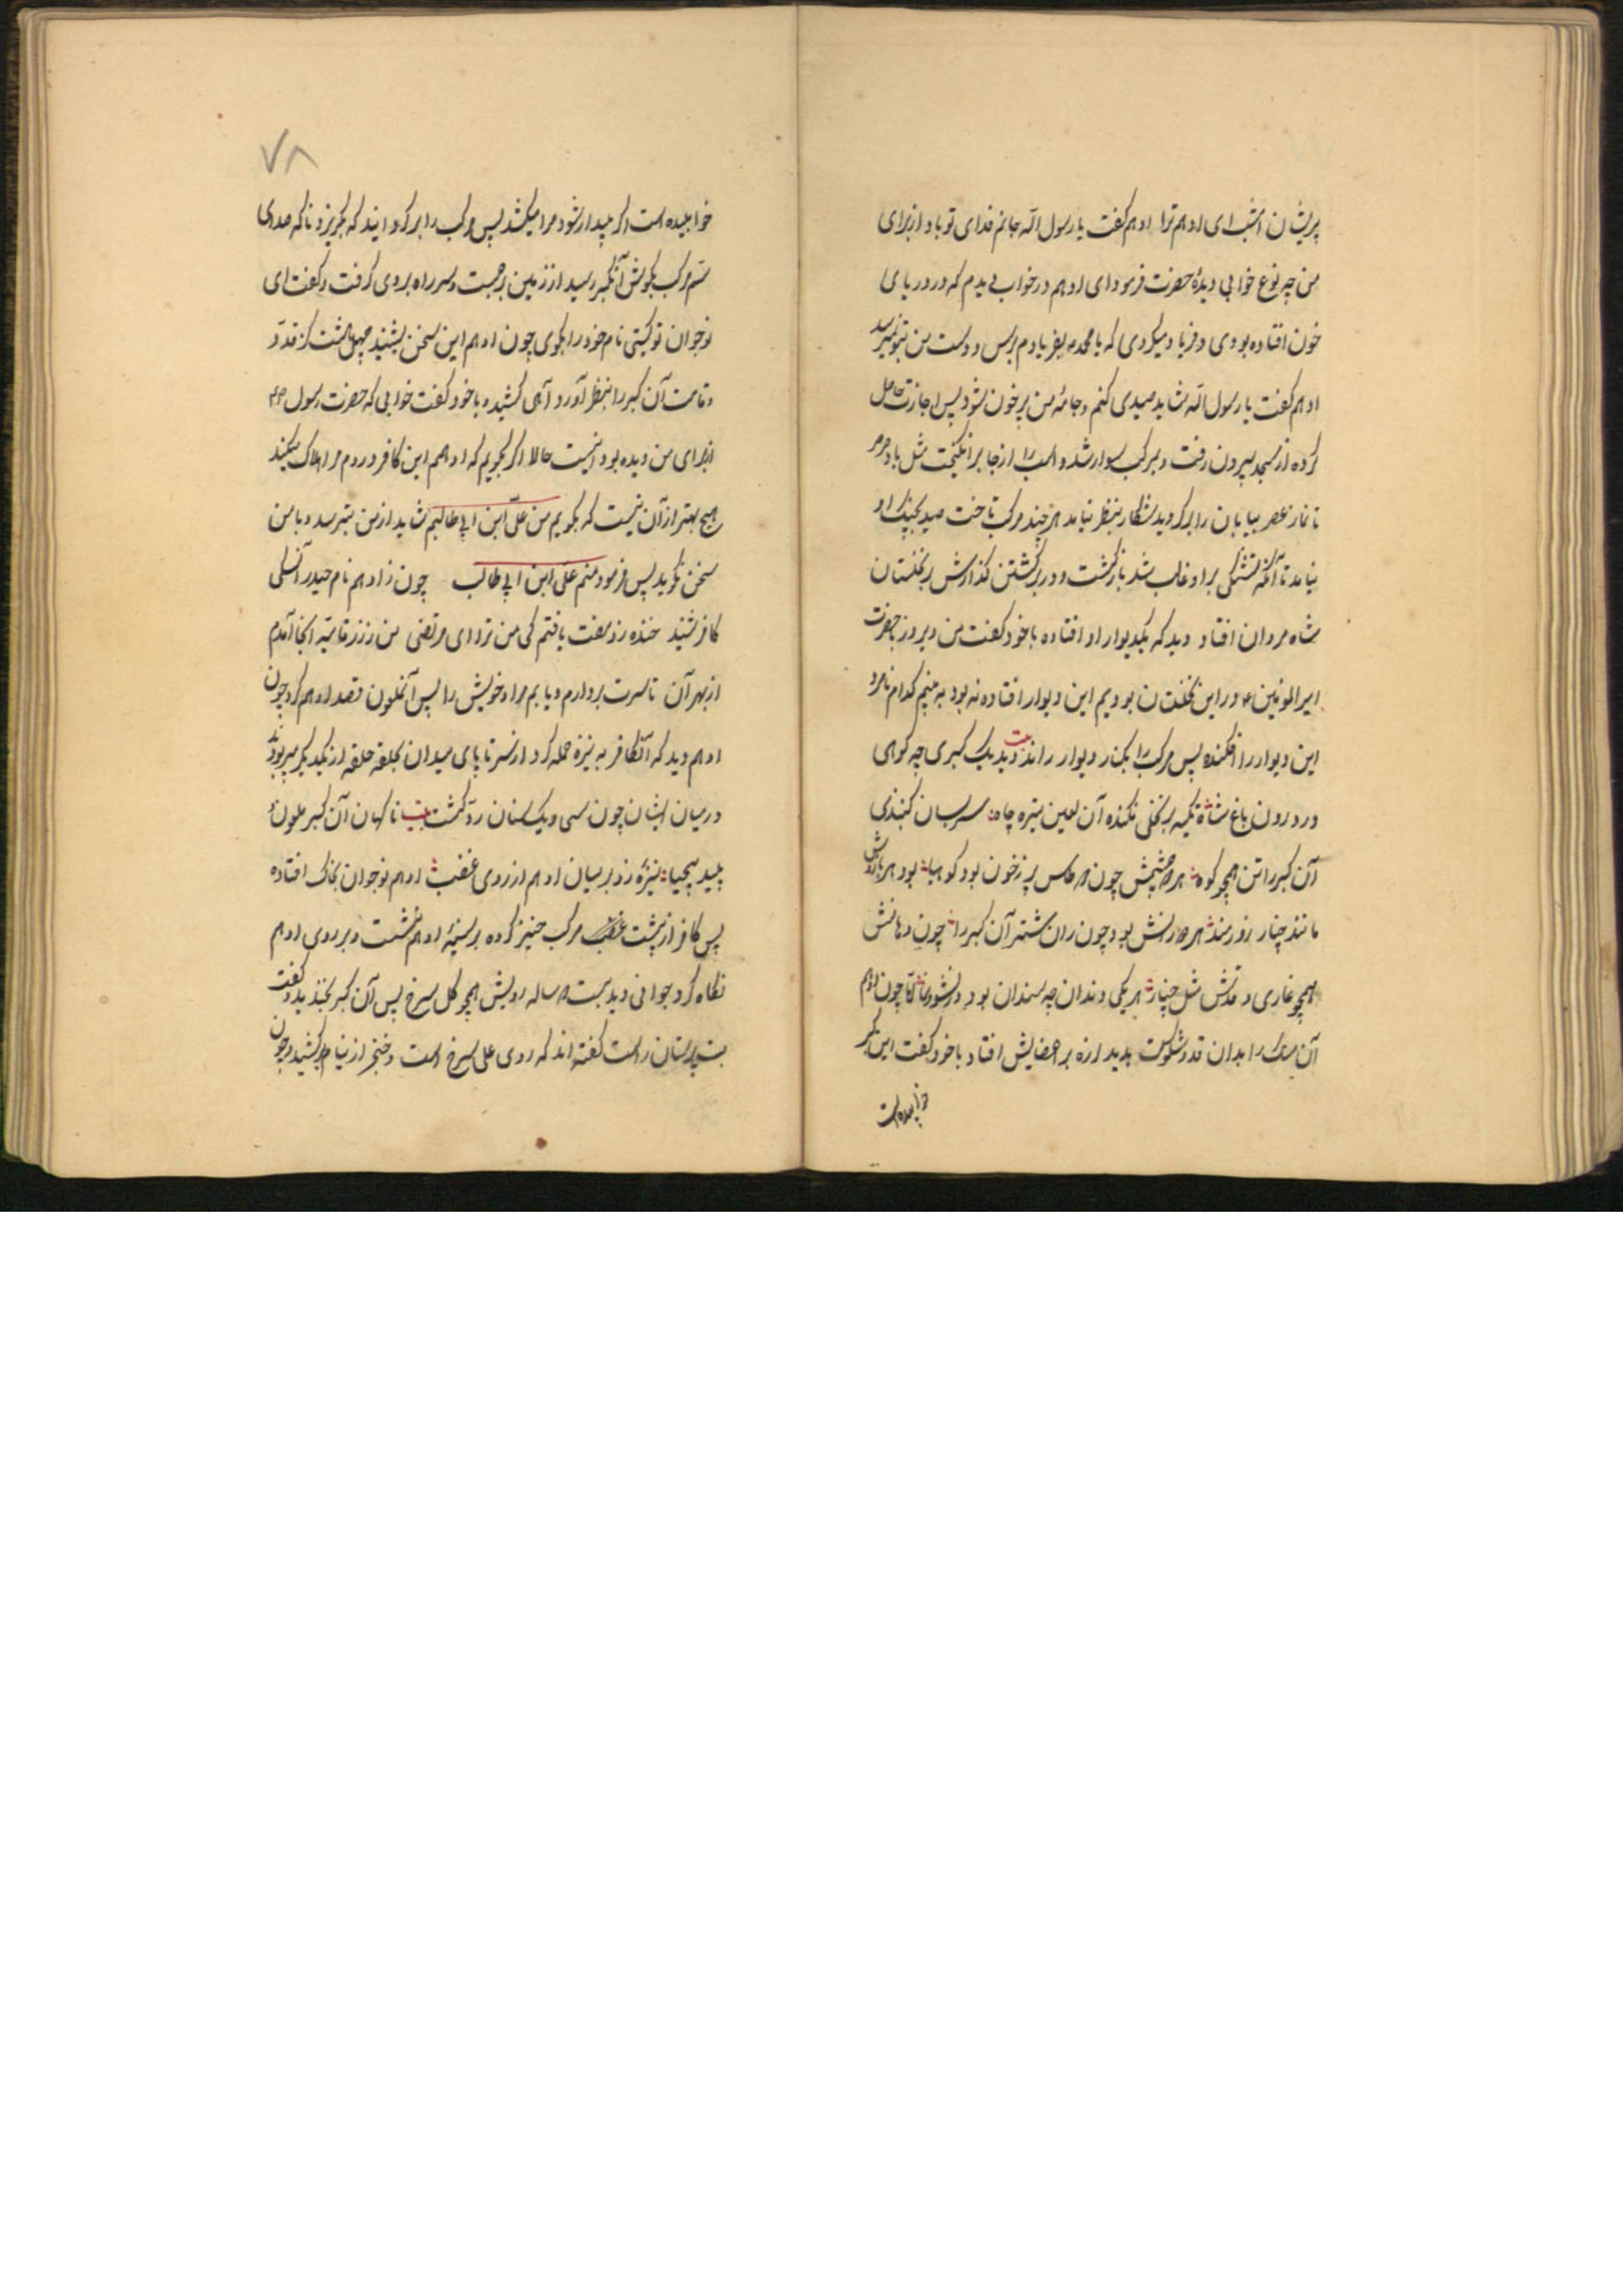 پریشان امشب ای ادهم ترا ادهم گفت یا رسول الله جانم فدای تو باد از برای
من چه نوع خوابی دیدهٔ حضرت فرمود ای ادهم در خواب دیدم که در دریای
خون افتاده بودی و فریاد میکردی که یا محمد بفریادم برس و دست من بتو نمیرسد
ادهم گفت یا رسول الله شاید صیدی کنم و جامهٔ من پر خون شود پس اجازت حاصل
کرده از مسجد بیرون رفت و بمرکب سوار شد و اسب را از جا برانگیخت مثل باد صرصر
تا نماز عصر بیابان را بگردید شکار بنظر نیامد هر چند مرکب تاخت صید بچنگ او
نیامد تا آنکه تشنگی بر او غالب شد بازگشت و در برگشتن گذارش بر نخلستان
شاه مردان افتاد دید که یکدیوار او افتاده با خود گفت من دیروز با حضرت
امیرالمؤمنین ع در این نخلستان بودیم این دیوار افتاده نه بود به بینم کدام نامرد
این دیوار را افکنده پس مرکب را بکنار دیوار راند بیت دید یک گبری چه کوهی
در درون باغ شاه تکیه بر نخلی فکنده آن لعین تیره چاه سر بسان گنبدی
آن گبر را تن همچو کوه هر دو چشمش چون دو طاس پر ز خون بود کوهیا بود هر بازوش
مانند چنار زورمند هر دو رانش بود چون ران شتر آن گبر را چون دهانش
همچو غاری و قدش مثل چنار هر یکی دندان چه سندان بود چون ادهم
آن سگ را بدان قد و شوکت بدید لرزه بر اعضایش افتاد با خود گفت این گبر
خوابیده است
۷۸
خوابیده است اگر بیدار شود مرا میکشد پس مرکب را برگردانید که بگریزد ناگه صدای
سم مرکب بگوش آن گبر رسید از زمین برجست و سر راه بروی گرفت و گفت ای
نوجوان تو کیستی نام خود را بگوی چون ادهم این سخن بشنید
و قامت آن گبر را بنظر آورد و آهی کشیده با خود گفت خوابی که حضرت رسول ص
از برای من دیده بود اینست حالا اگر بگویم که ادهمم این کافر در دم مرا هلاک میکند
هیچ بهتر از آن نیست که بگویم من علی ابن ابی طالبم شاید از من بترسد و با من
سخن نگوید پس فرمود منم علی ابن ابی طالب چون ز ادهم نام حیدر آنسگی
کافر شنید خنده زد گفت یافتم کی من ترو ای مرتضی من ز زرقانیه اینجا آمدم
از بهر آن تا سرت بردارم و یابم مراد خویش را پس آنملعون قصد ادهم کرد چون
ادهم دید که آنکافر به نیزه حمله کرد از سر تا پای میدان بحلقه حلقه از یکدیگر میربود
در میان ایشان چون سی و یک سنان رد گشت بیت ناگهان آن گبر ملعون
پلید بیحیا نیزهٔ زد بر میان ادهم از روی غضب ادهم نوجوان بخاک افتاده
پس کافر از پشت مرکب خیز کرده بر سینهٔ ادهم نشست و بر روی ادهم
نگاه کرد جوانی دید بیست دو ساله رویش همچو گل سرخ پس آن گبر بخندید و گفت
بت پرستان راست گفته اند که روی علی سرخ است و خنجر از نیام برکشید و چون